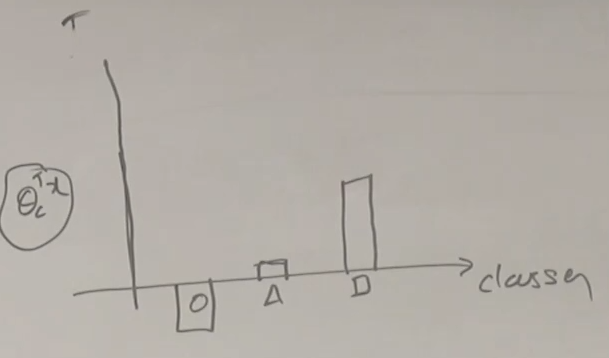 T
θ_c^T x
O Δ D
classen